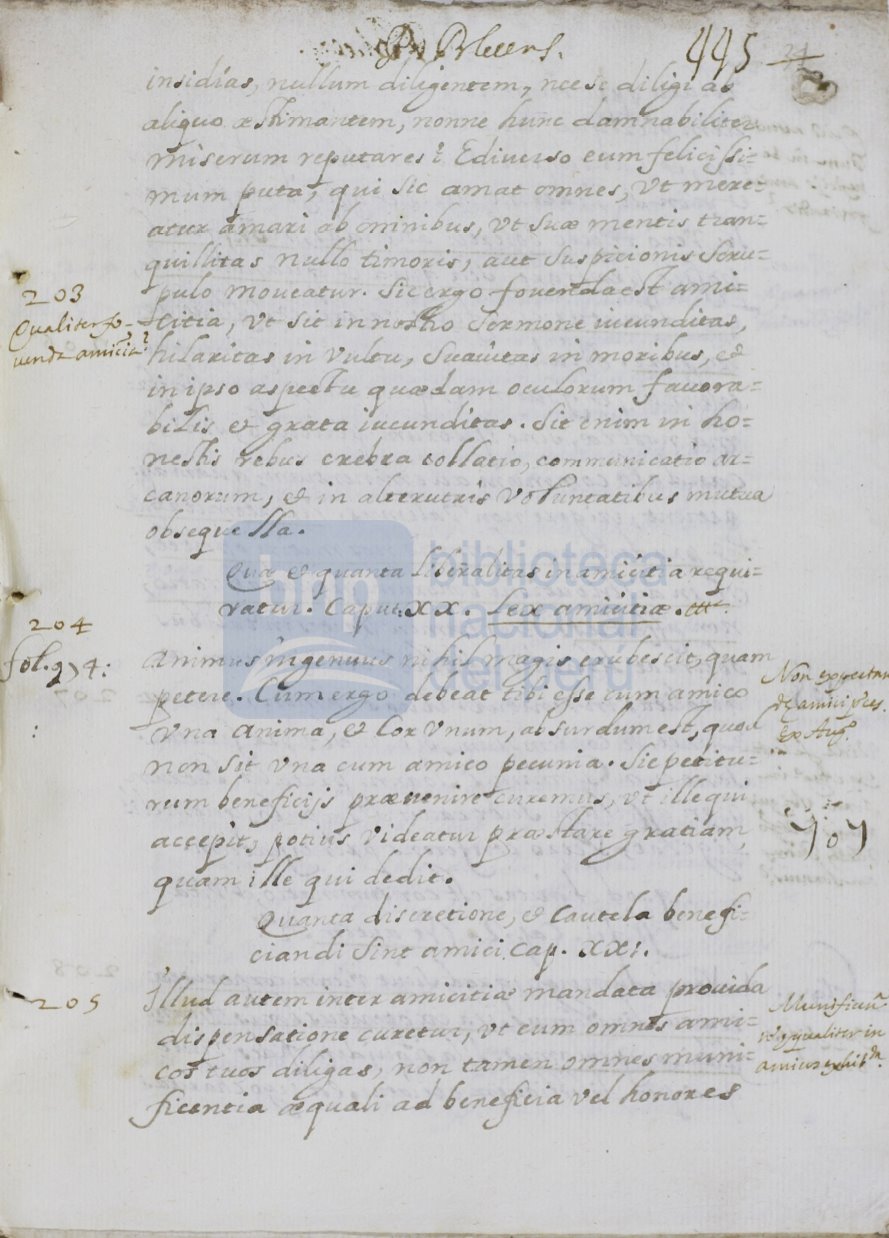 P. Blesens.
445 24
insidias, nullum diligentem, nec se diligi ab
aliquo æstimantem, nonne hunc damnabiliter
miserum reputares? Ediverso eum felicissi-
mum puta, qui sic amat omnes, vt mere-
atur amari ab omnibus, vt suæ mentis tran-
quillitas nullo timoris, aut suspicionis scru-
pulo moueatur. Sic ergo fouenda est ami-
citia, vt sit in nostro sermone iucunditas,
hilaritas in vultu, suauitas in moribus, et
in ipso aspectu quædam oculorum fauora-
bilis et grata iucunditas. Sit enim in ho-
nestis rebus crebra collatio, communicatio ar-
canorum, et in alterutris voluntatibus mutua
obsequella.
203
Qualiter fo-
uendæ amicitiæ?
Quæ et quanta liberalitas in amicitia requi-
ratur. Caput. XX. Lex amicitiæ.
204
fol. 974:
Animus ingenuus nihil magis erubescit, quam
petere. Cum ergo debeat tibi esse cum amico
vna anima, et cor vnum, absurdum est, quod
non sit vna cum amico pecunia. Sic petitu-
rum beneficijs præuenire curemus, vt ille qui
accepit, potius videatur præstare gratiam,
quam ille qui dedit.
Non expectan
dæ amici preces.
Ex Aug.
707
Quanta discretione, et cautela benefi-
ciandi sint amici. Cap. XXI.
205
Illud autem inter amicitiæ mandata prouida
dispensatione curetur, vt cum omnes ami-
cos tuos diligas, non tamen omnes muni-
ficentia æquali ad beneficia vel honores
qualiter in